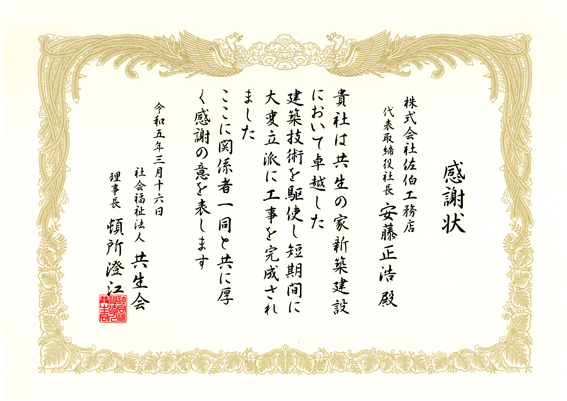 感謝状
株式会社佐伯工務店
代表取締役社長 安藤正浩 殿
貴社は共生の家新築建設
において卓越した
建築技術を駆使し短期間に
大変立派に工事を完成され
ました
ここに関係者一同と共に厚
く感謝の意を表します
令和五年三月十六日
社会福祉法人 共生会
理事長 頓所澄江